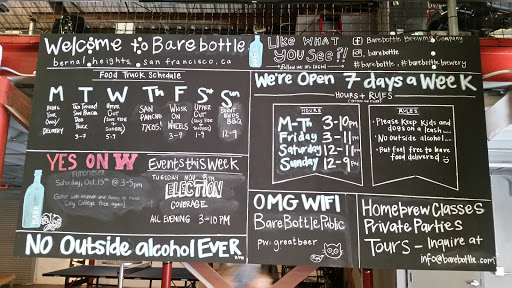 Welcome to Barebottle
bernal.heights, san francisco, ca
Food Truck Schedule
M T W Th F S Sn
BRING YOUR OWN/DELIVERY
3-7
UPPER CRUST
5-9
SAN PANCHO TACOS!
WHISK ON WHEELS
3-9
UPPER CRUST
1-9
BBQ
12-9
YES ON W
FUNDRAISER
Saturday, Oct. 15th @ 3-5pm
City College free again!
Events this Week
TUESDAY NOV 8th
ELECTION
COVERAGE
ALL EVENING 3-10PM
No Outside alcohol EVER
LIKE WHAT
YOU SEE?!
follow us on social
Barebottle Brewing Company
barebottle
#barebottle, #barebottlebrewery
We're Open 7 days a Week
HOURS + RULES
HOURS
M-Th 3-10pm
Friday 3-11pm
Saturday 12-11
Sunday 12-9pm
RULES
- Please Keep Kids and
dogs on a leash
- No outside alcohol
- But feel free to have
food delivered
OMG WIFI
BareBottle Public
pw: greatbeer
Homebrew Classes
Private Parties
Tours - Inquire at
info@barebottle.com